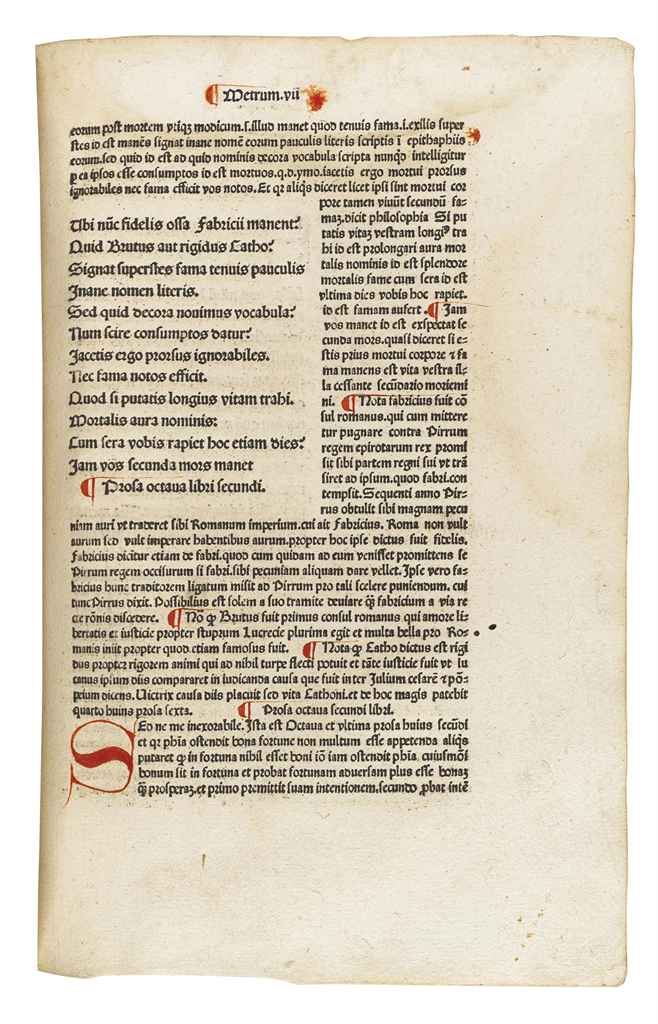 ¶ Metrum.vii
eorum post mortem vtiqz modicum.s.illud manet quod tenuis fama.i.exilis super
stes id est manẽs signat inane nomẽ eorum pauculis literis scriptis ĩ epithaphiis
eorum.sed quid id est ad quid nominis decora vocabula scripta nunqđ intelligitur
ꝑ ea ipsos esse consumptos id est mortuos.q.d.ymo.iacetis ergo mortui prorsus
ignorabiles nec fama efficit vos notos. Et qr aliqs diceret licet ipsi sint mortui cor
pore tamen viuũt secundũ fa-
maz.dicit philosophia Si pu
tatis vitaz vestram longiꝰ tra
hi id est prolongari aura mor
talis nominis id est splendore
mortalis fame cum sera id est
vltima dies vobis hoc rapiet.
id est famam aufert. ¶ Jam
vos manet id est exspectat se
cunda mors.quasi diceret si e-
stis prius mortui corpore ⁊ fa
ma manens est vita vestra il-
la cessante secũdario moriemi
ni. ¶ Nota fabricius fuit cõ
sul romanus.qui cum mittere
tur pugnare contra Pirrum
regem epirotarum rex promi
sit sibi partem regni sui vt trã
siret ad ipsum.quod fabri.con
tempsit. Sequenti anno Pir-
rus obtulit sibi magnam pecu
Ubi nũc fidelis ossa Fabricii manent?
Quid Brutus aut rigidus Catho?
Signat superstes fama tenuis pauculis
Inane nomen literis.
Sed quid decora nouimus vocabula?
Num scire consumptos datur?
Jacetis ergo prorsus ignorabiles.
Nec fama notos efficit.
Quod si putatis longius vitam trahi.
Mortalis aura nominis:
Cum sera vobis rapiet hoc etiam dies?
Jam vos secunda mors manet
¶ Prosa octaua libri secundi.
niam auri vt traderet sibi Romanum imperium.cui ait Fabricius. Roma non vult
aurum sed vult imperare habentibus aurum.propter hoc ipse dictus fuit fidelis.
Fabricius dicitur etiam de fabri.quod cum quidam ad eum venisset promittens se
Pirrum regem occisurum si fabri.sibi pecuniam aliquam dare vellet. Ipse vero fa-
bricius hunc traditorem ligatum misit ad Pirrum pro tali scelere puniendum. cui
tunc Pirrus dixit. Possibilius est solem a suo tramite deuiare qꝫ fabricium a via re
cte rõnis discedere. ¶ Nõ ꝙ Brutus fuit primus consul romanus qui amore li-
bertatis et iusticie propter stuprum Lucrecie plurima egit et multa bella pro Ro-
manis iniit propter quod.etiam famosus fuit. ¶ Nota ꝙ Catho dictus est rigi
dus propter rigorem animi qui ad nihil turpe flecti potuit et tãte iusticie fuit vt lu
canus ipsum diis compararet in iudicanda causa que fuit inter Julium cesarẽ ⁊ põ-
peium dicens. Uictrix causa diis placuit sed victa Cathoni.et de hoc magis patebit
quarto huius prosa sexta. ¶ Prosa octaua secundi libri.
SEd ne me inexorabile. Ista est Octaua et vltima prosa huius secũdi
et qr phĩa ostendit bona fortune non multum esse appetenda aliqs
putaret ꝙ in fortuna nihil esset boni iõ iam ostendit phĩa cuiusmõi
bonum sit in fortuna et probat fortunam aduersam plus esse bonaz
qꝫ prosperaz.et primo premittit suam intentionem.secundo ꝓbat intẽ